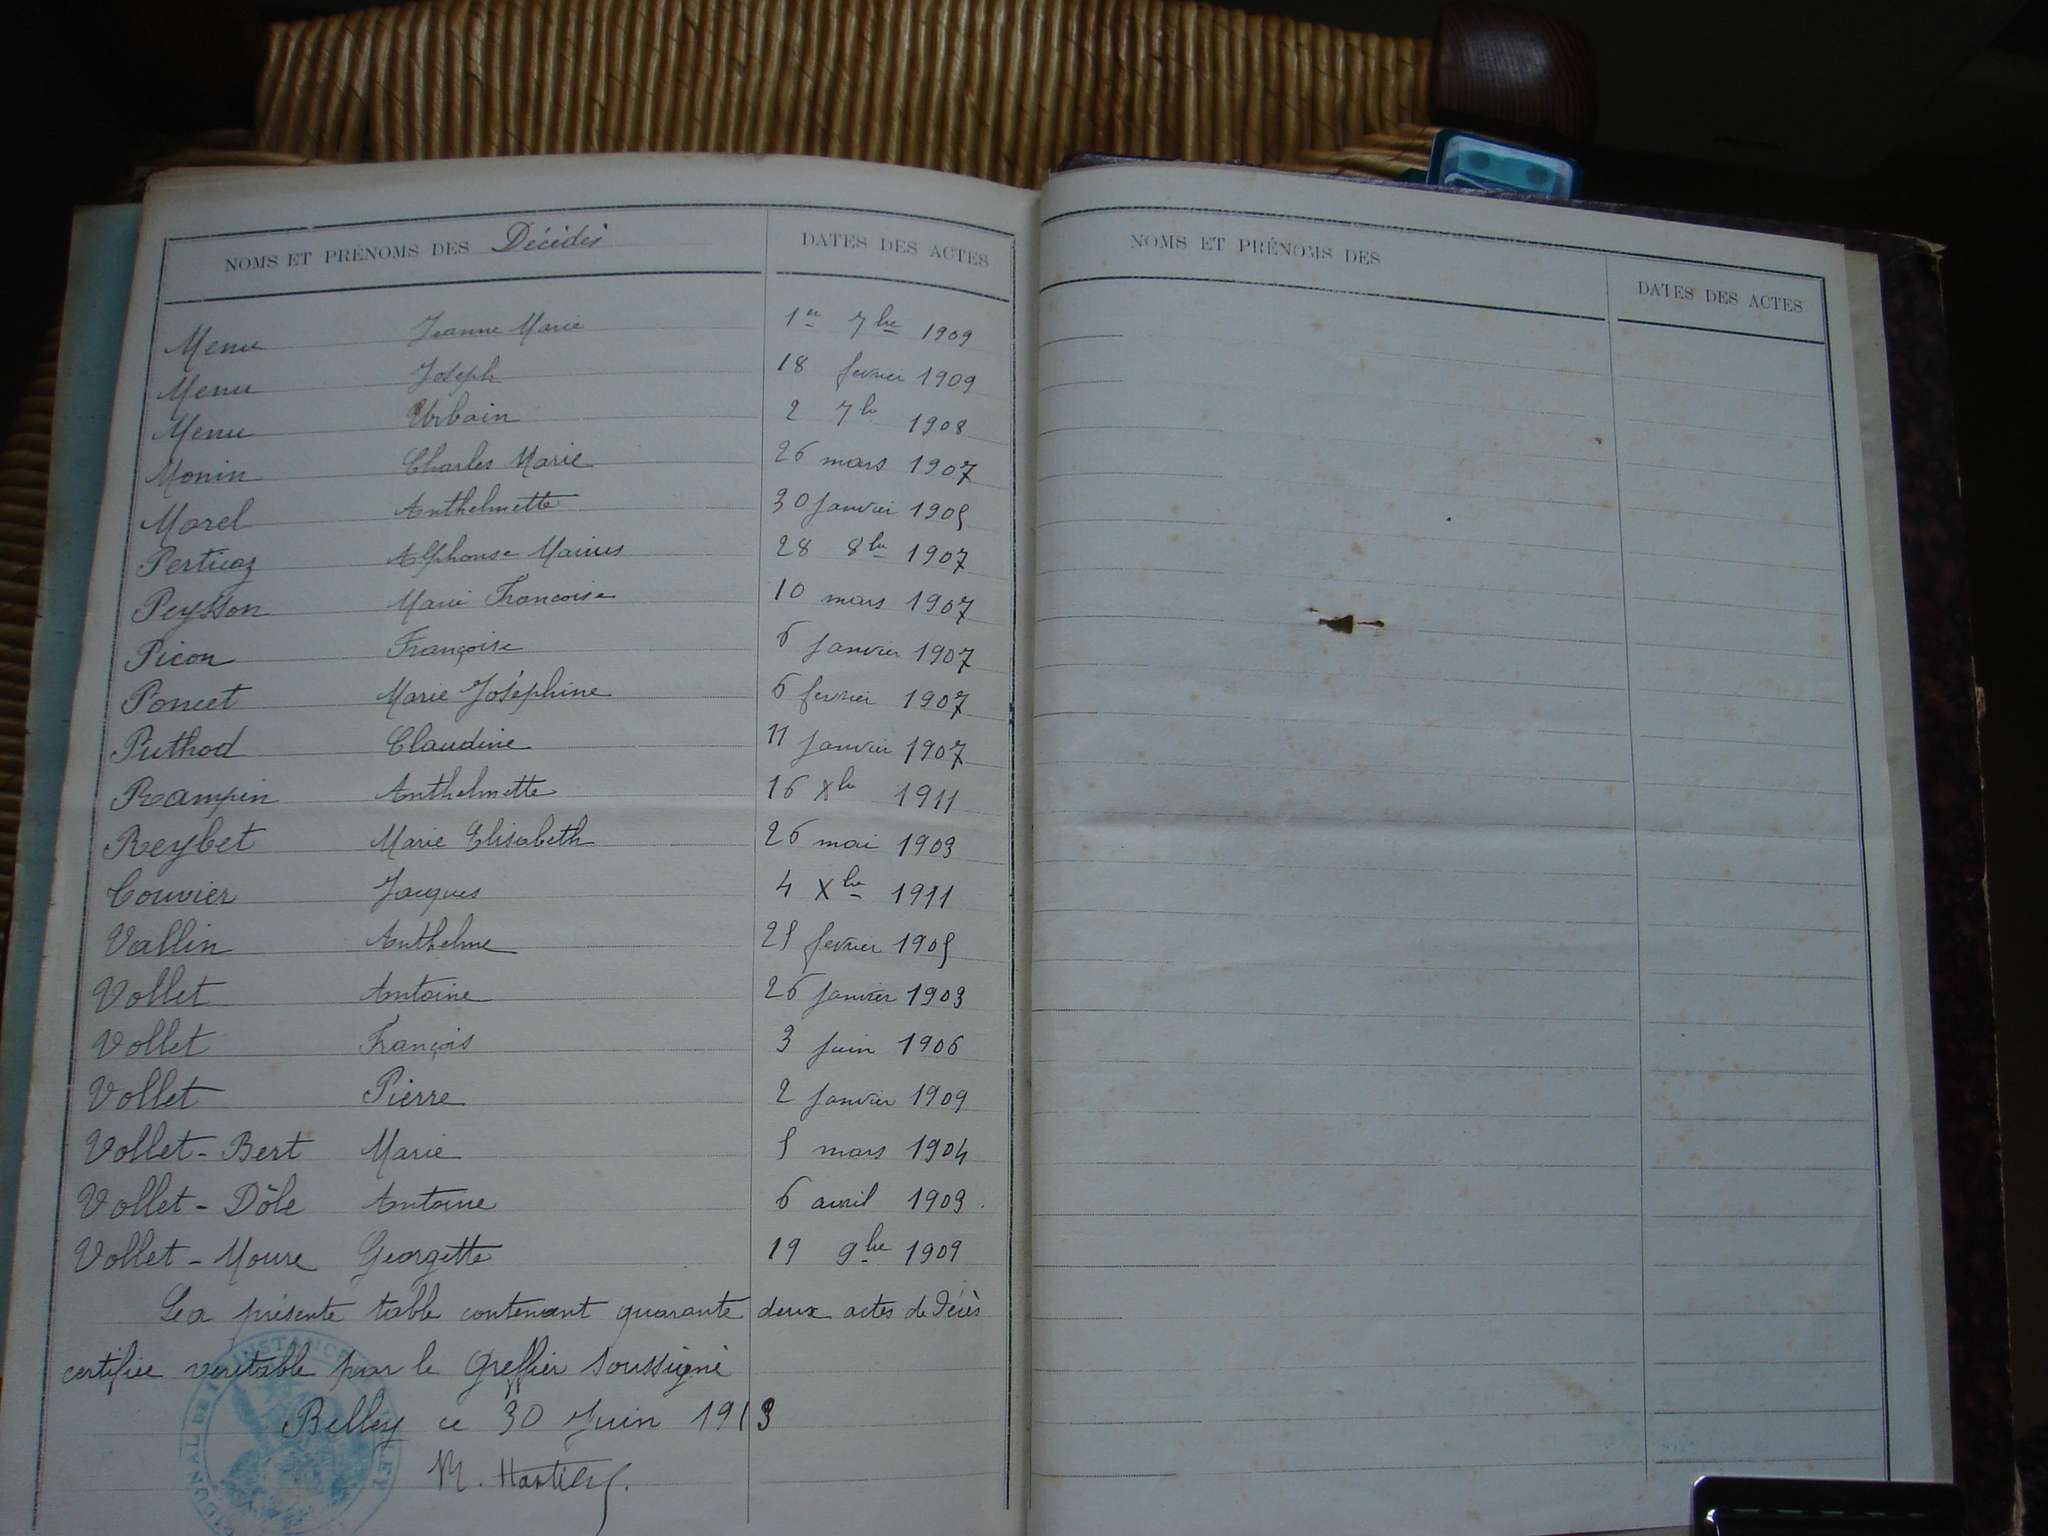 NOMS ET PRÉNOMS DES Décidés DATES DES ACTES
Menu Jeanne Marie 1er 7bre 1909
Menu Joseph 18 fevrier 1909
Menu Urbain 2 7b 1908
Monin Charles Marie 26 mars 1907
Morel Anthelmette 30 Janvier 1905
Perticoz Alphonse Marius 28 8bre 1907
Peysson Marie Francoise 10 mars 1907
Picon Françoise 6 Janvier 1907
Poncet Marie Joséphine 6 fevrier 1907
Puthod Claudine 11 Janvier 1907
Rampin Anthelmette 16 Xbre 1911
Reybet Marie Elisabeth 26 mai 1903
Couvier Jacques 4 Xbre 1911
Vallin Anthelme 25 fevrier 1905
Vollet Antoine 26 Janvier 1903
Vollet François 3 Juin 1906
Vollet Pierre 2 Janvier 1909
Vollet-Bert Marie 5 mars 1904
Vollet-Dôle Antoine 6 avril 1903.
Vollet-Moure Georgette 19 9bre 1909
La présente table contenant quarante deux actes de Décès
certifiée veritable par le Greffier soussigné
Belley ce 30 Juin 1913
NOMS ET PRÉNOMS DES DATES DES ACTES